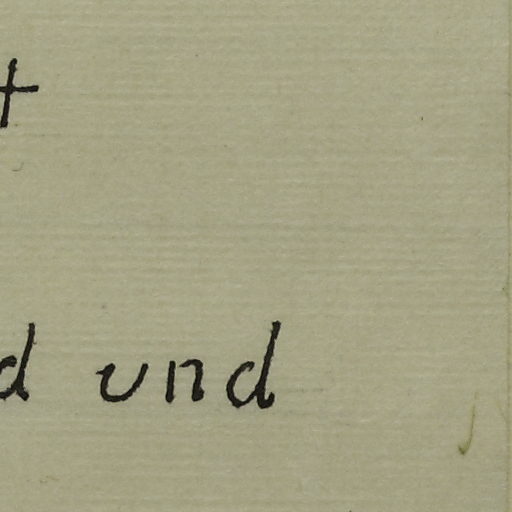 t
d und